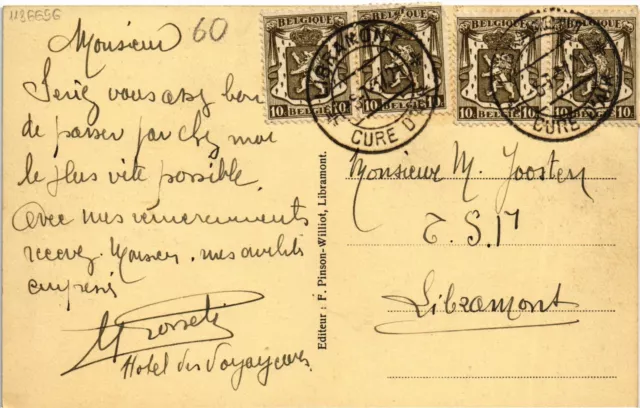 1136656
60
Monsieur
Seriez vous assez bon
de passer par chez moi
le plus vite possible
avec mes remerciements
recevez, Monsieur, mes civilités
empressées
Hotel des Voyageurs
Editeur : F. Pinson-Williot, Libramont.
BELGIQUE BELGIQUE BELGIQUE
10 BELGIE 10 10 BELGIE 10 10 BELGIE 10 10 BELGIE 10
LIBRAMONT
CURE D'AIR
CURE D'AIR
Monsieur M. Joosten
T. S. 17
Libramont